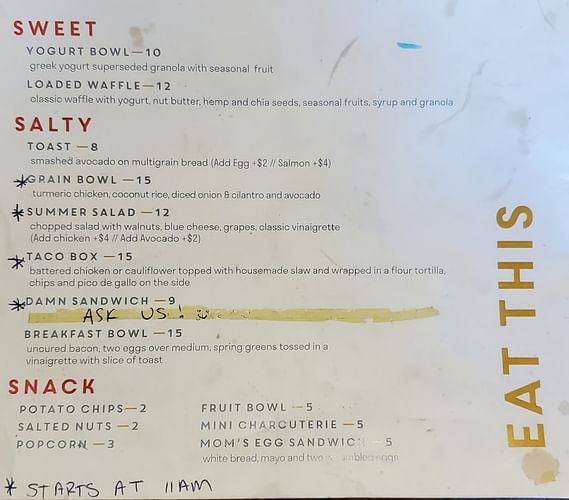 SWEET
YOGURT BOWL—10
greek yogurt superseded granola with seasonal fruit
LOADED WAFFLE—12
classic waffle with yogurt, nut butter, hemp and chia seeds, seasonal fruits, syrup and granola
SALTY
TOAST —8
smashed avocado on multigrain bread (Add Egg +$2 // Salmon +$4)
*GRAIN BOWL —15
turmeric chicken, coconut rice, diced onion & cilantro and avocado
*SUMMER SALAD —12
chopped salad with walnuts, blue cheese, grapes, classic vinaigrette
(Add chicken +$4 // Add Avocado +$2)
*TACO BOX —15
battered chicken or cauliflower topped with housemade slaw and wrapped in a flour tortilla,
chips and pico de gallo on the side
*DAMN SANDWICH —9
ASK US!
BREAKFAST BOWL —15
uncured bacon, two eggs over medium, spring greens tossed in a
vinaigrette with slice of toast
SNACK
POTATO CHIPS—2
SALTED NUTS —2
POPCORN —3
FRUIT BOWL —5
MINI CHARCUTERIE —5
MOM'S EGG SANDWICH 5
white bread, mayo and two eggs
* STARTS AT 11AM
EAT THIS